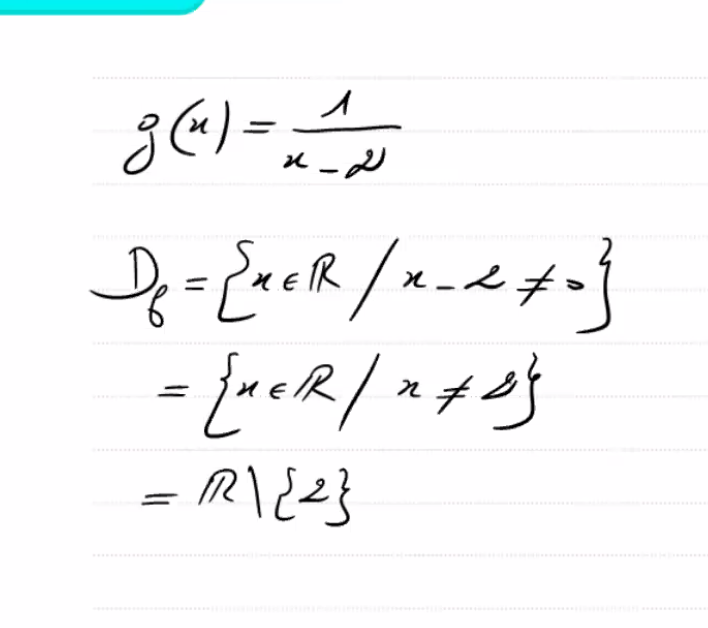 g(x) = 1/(x - 2)
D_f = {x ∈ ℝ / x - 2 ≠ 0}
= {x ∈ ℝ / x ≠ 2}
= ℝ \ {2}